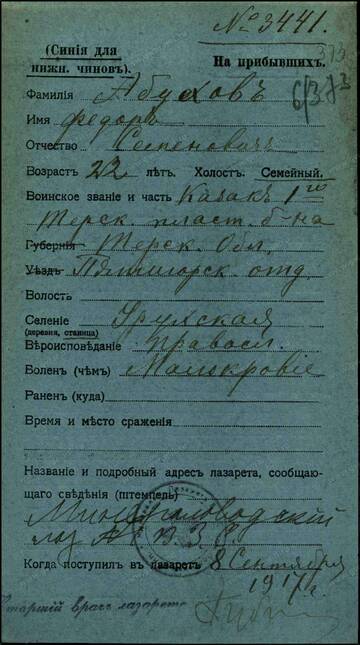 № 3441.
(Синія для
нижн. чиновъ).
На прибывшихъ.
373
б/373
Фамилія Абуховъ
Имя Федоръ
Отчество Семеновичъ
Возрастъ 22 лѣтъ. Холост. Семейный.
Воинское званіе и часть Казакъ 1го
Терск. пласт. б-на
Губернія Терск. Обл.
Уѣздъ Пятигорск. отд.
Волость
Селеніе Урухская
(деревня, станица)
Вѣроисповѣданіе Правосл.
Боленъ (чѣмъ) Малокровіе
Раненъ (куда)
Время и мѣсто сраженія
Названіе и подробный адресъ лазарета, сообщаю-
щаго свѣдѣнія (штемпель)
Минераловодскій
лаз. В. З. С.
Когда поступилъ въ лазаретъ 8 Сентября
1917 г.
Старшій врачъ лазарета